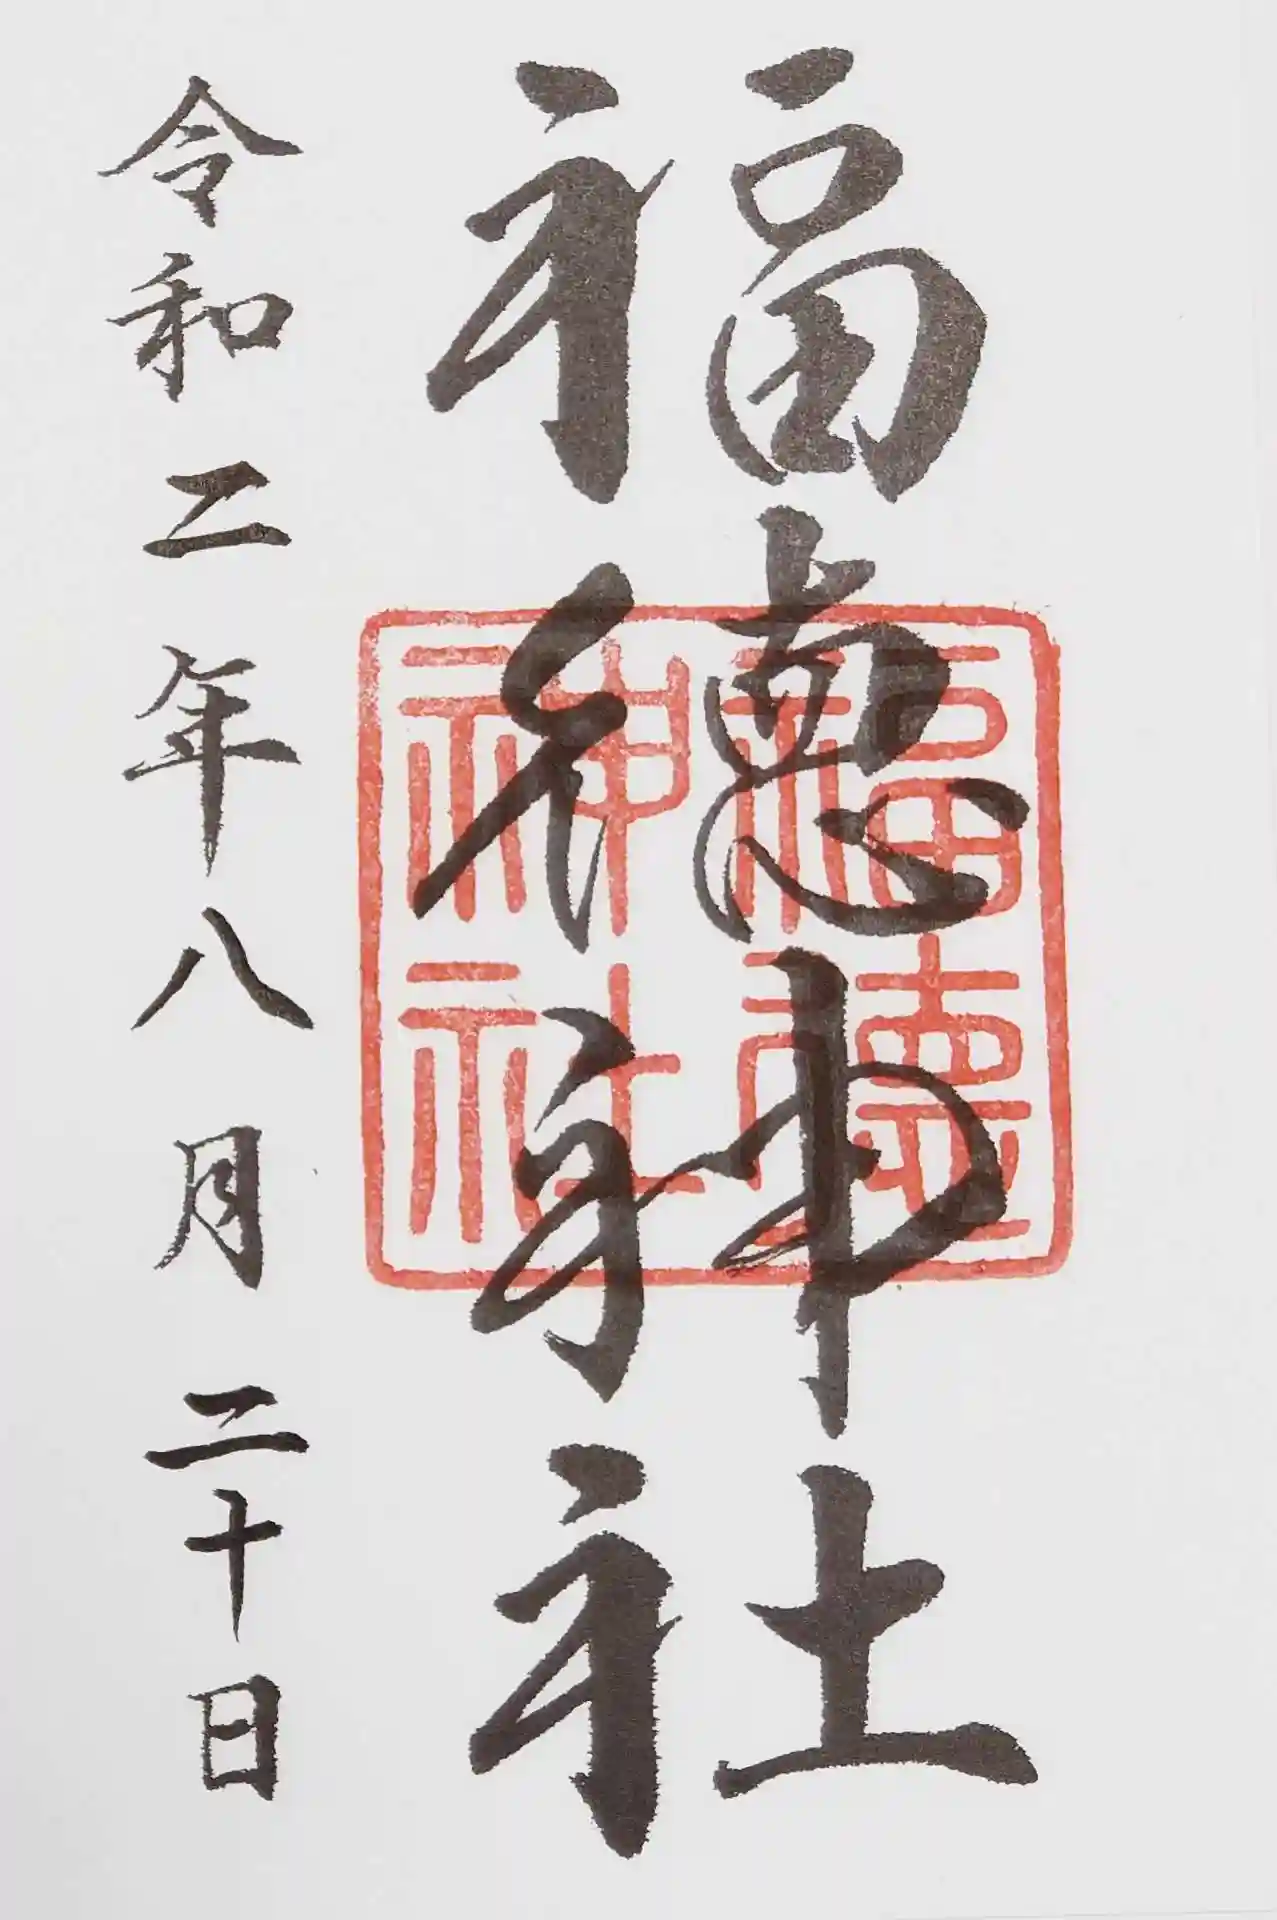 福徳神社
福徳神社
令和二年八月二十日